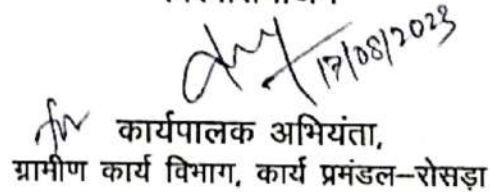 17/08/2023
कार्यपालक अभियंता,
ग्रामीण कार्य विभाग, कार्य प्रमंडल–रोसड़ा